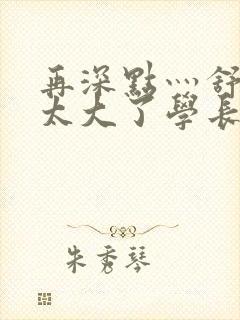 再深點灬舒
太大了學長
朱秀琴